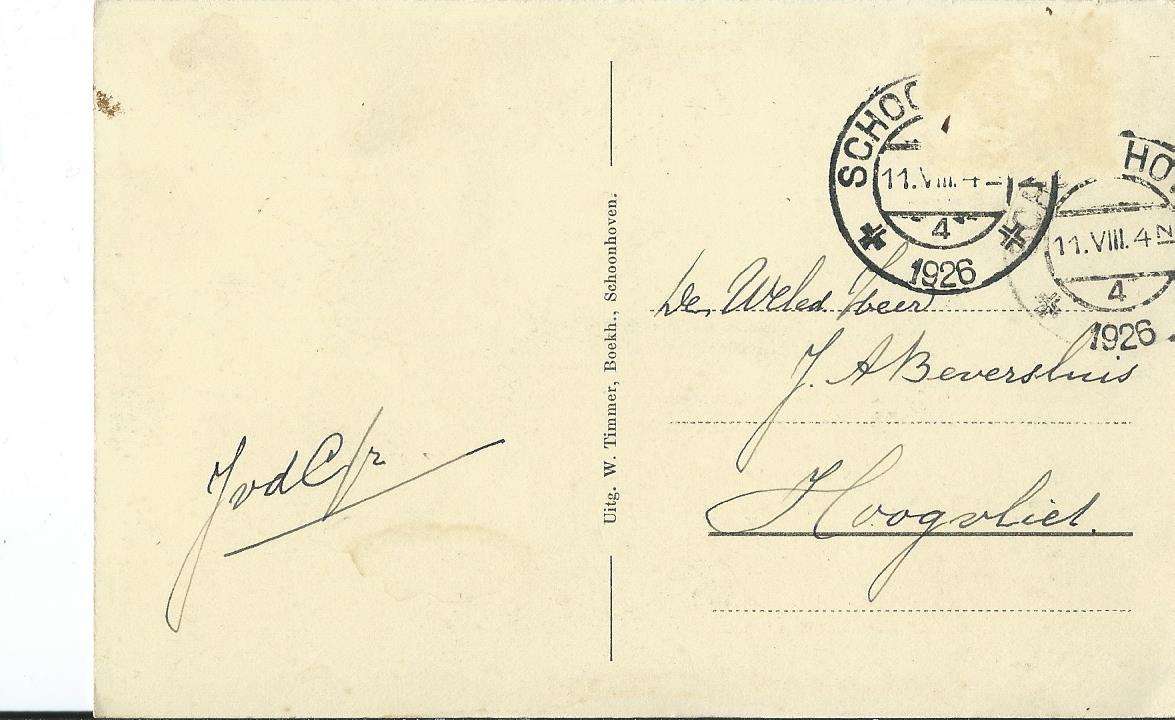 SCHOO
11.VIII.4
4
1926
HO
11.VIII.4 N
4
1926
Den Weled Heer
J. A Bevershuis
Hoogvliet.
JvdC
Uitg. W. Timmer, Boekh., Schoonhoven.